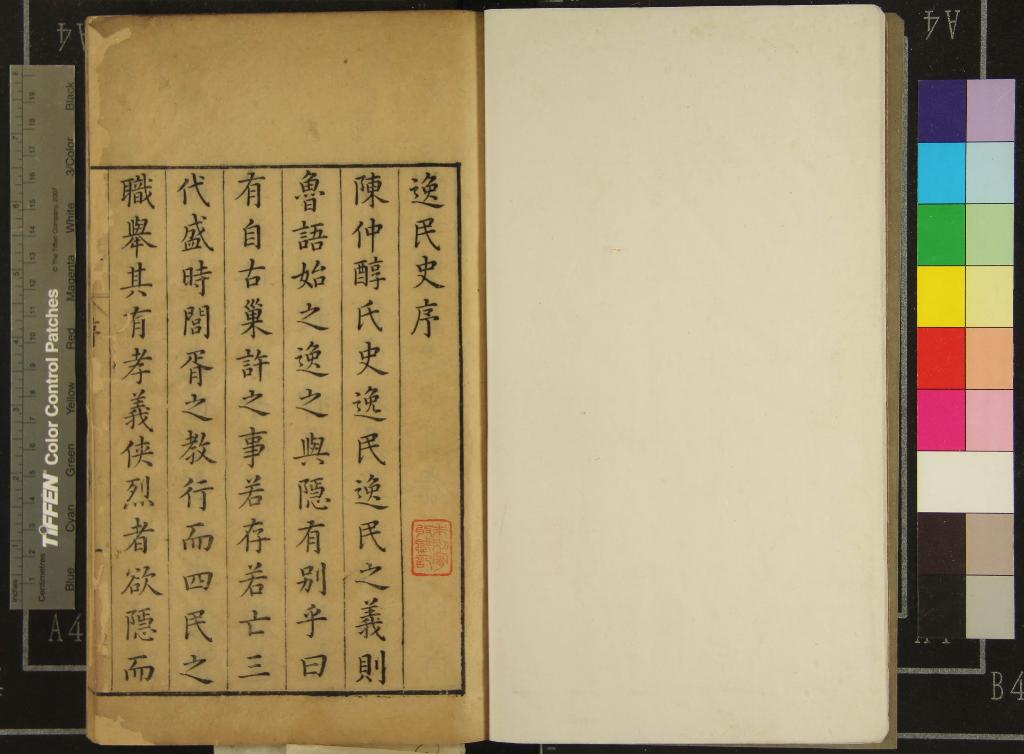 逸民史序
陳仲醇氏史逸民逸民之義則
魯語始之逸之與隱有別乎曰
有自古巢許之事若存若亡三
代盛時閭胥之教行而四民之
職舉其有孝義俠烈者欲隱而
序
一
TIFFEN Color Control Patches
© The Tiffen Company, 2007
Inches
Centimetres
Blue Cyan Green Yellow Red Magenta White 3/Color Black
A4
A4
A4
B4